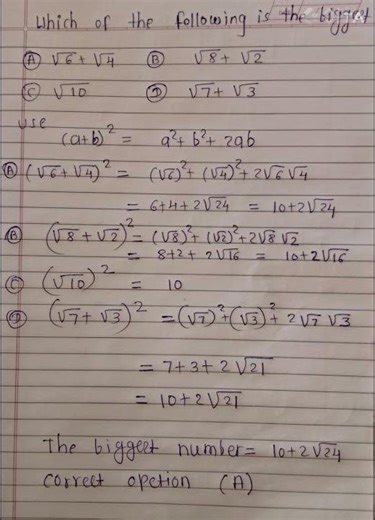 Which of the following is the biggest
Ⓐ √6 + √4 Ⓑ √8 + √2
Ⓒ √10 Ⓓ √7 + √3
use
(a+b)² = a² + b² + 2ab
Ⓐ (√6 + √4)² = (√6)² + (√4)² + 2√6 √4
= 6+4+2√24 = 10+2√24
Ⓑ (√8 + √2)² = (√8)² + (√2)² + 2√8 √2
= 8+2 + 2√16 = 10+2√16
Ⓒ (√10)² = 10
Ⓓ (√7 + √3)² = (√7)² + (√3)² + 2√7 √3
= 7+3+2√21
= 10+2√21
The biggest number = 10+2√24
correct opction (A)